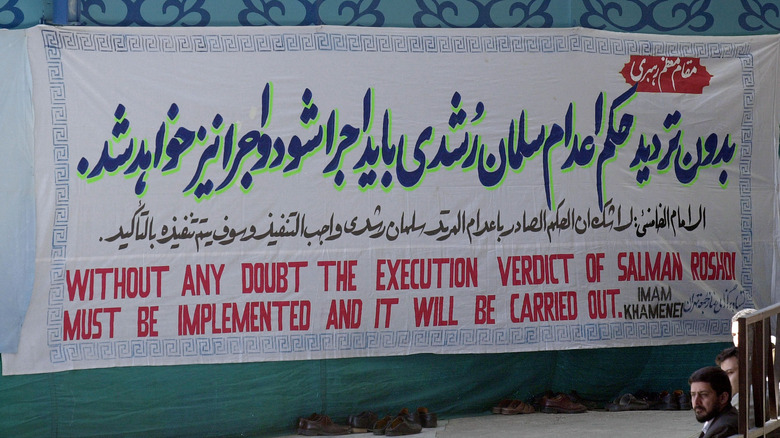 مقام معظم رهبری
بدون تردید حکم اعدام سلمان رُشدی باید اجرا شود و اجرا نیز خواهد شد.
الامام الخامنئی: لا شک ان الحکم الصادر باعدام المرتد سلمان رشدی واجب التنفیذ و سوف یتم تنفیذه بالتأکید.
WITHOUT ANY DOUBT THE EXECUTION VERDICT OF SALMAN ROSHDI
MUST BE IMPLEMENTED AND IT WILL BE CARRIED OUT. IMAM KHAMENEI